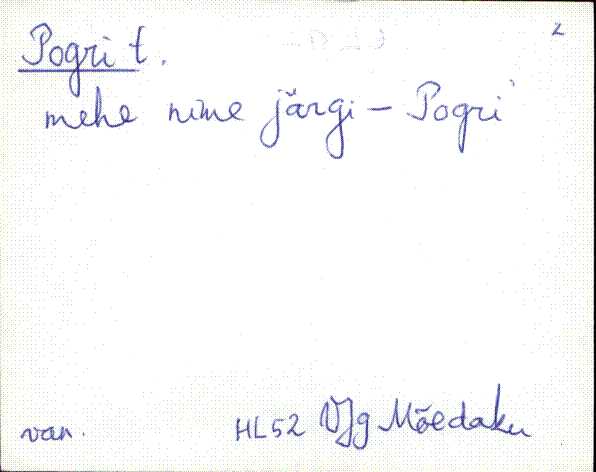 2
Pogri t.
mehe nime järgi – Pogri
van. HL52 VJg Mõedaku